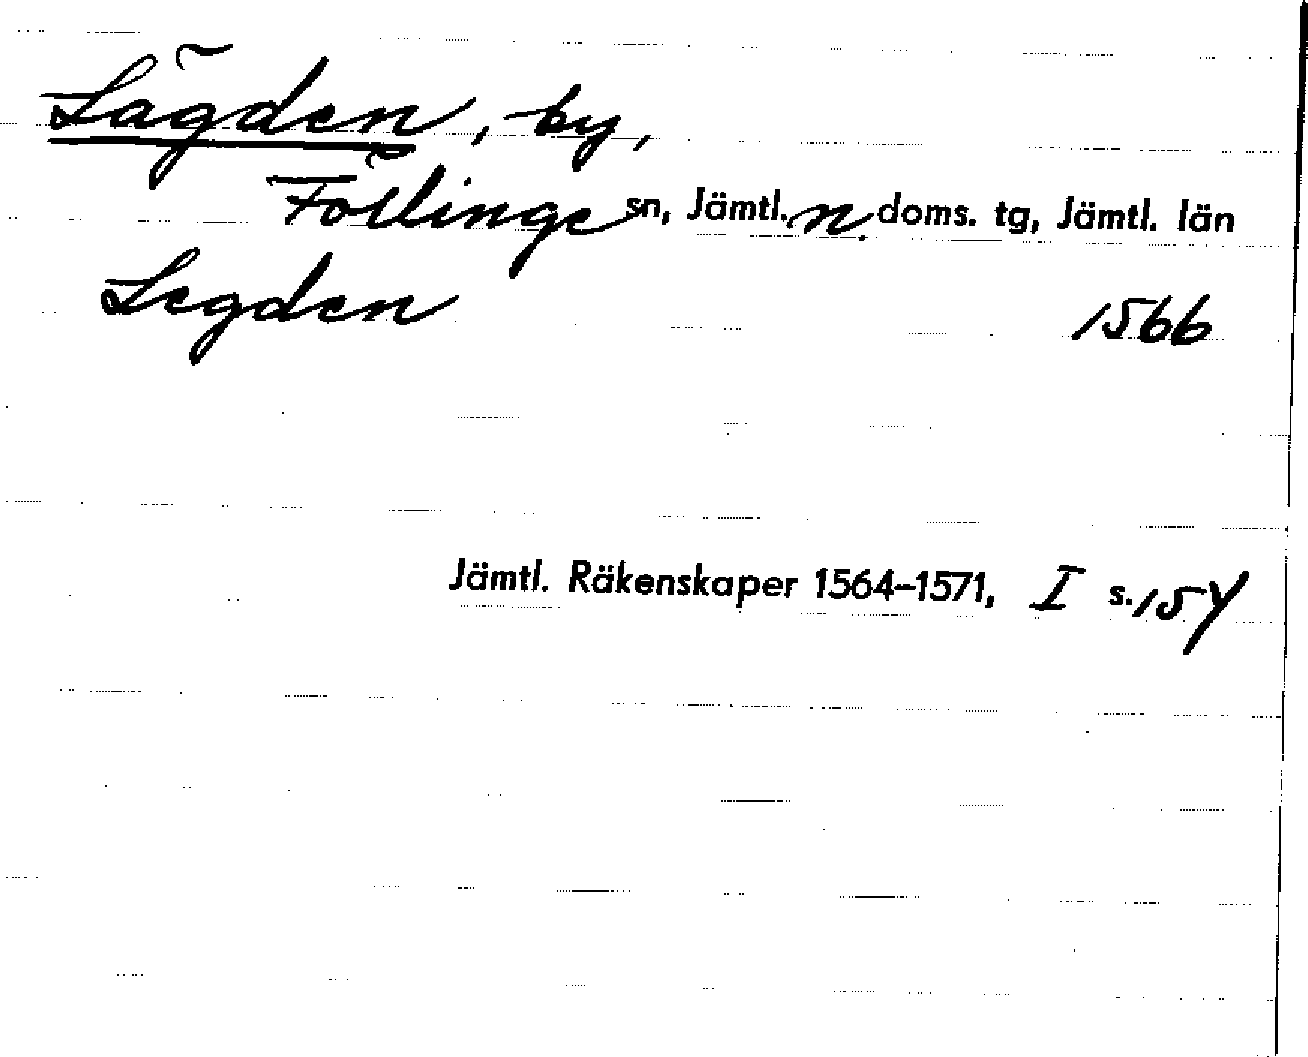 Lägden, by,
Föllinge sn, Jämtl. n. doms. tg, Jämtl. län
Legden 1566
Jämtl. Räkenskaper 1564–1571, I s. 157